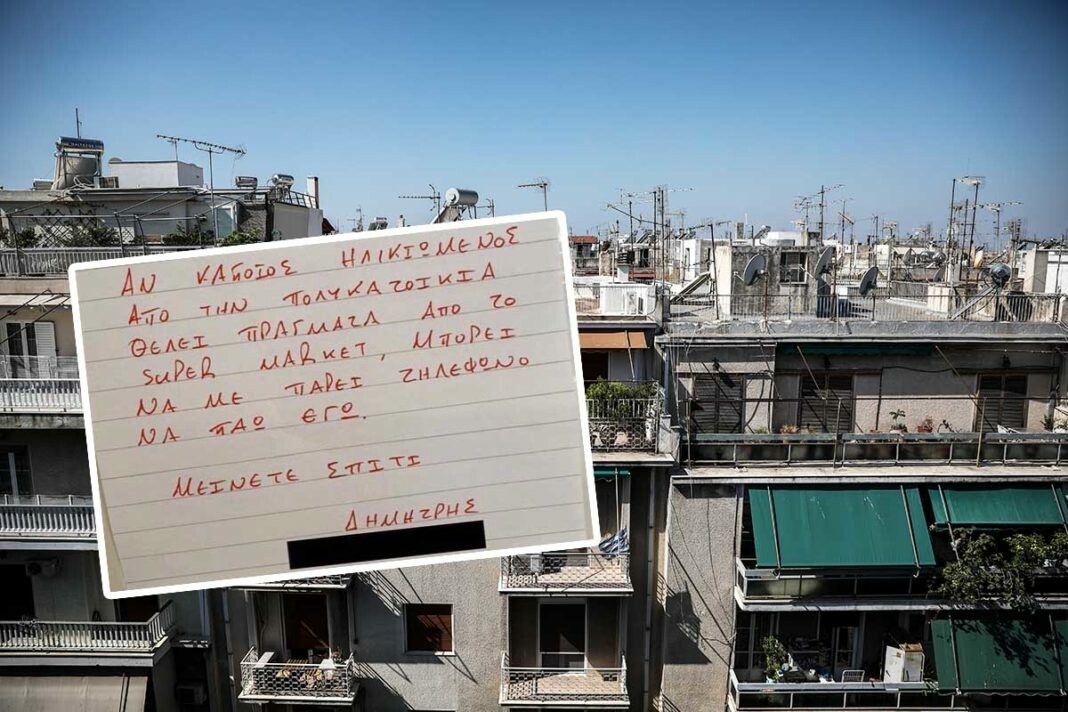 ΑΝ ΚΑΠΟΙΟΣ ΗΛΙΚΙΩΜΕΝΟΣ
ΑΠΟ ΤΗΝ ΠΟΛΥΚΑΤΟΙΚΙΑ
ΘΕΛΕΙ ΠΡΑΓΜΑΤΑ ΑΠΟ ΤΟ
SUPER MARKET, ΜΠΟΡΕΙ
ΝΑ ΜΕ ΠΑΡΕΙ ΤΗΛΕΦΩΝΟ
ΝΑ ΠΑΩ ΕΓΩ.
ΜΕΙΝΕΤΕ ΣΠΙΤΙ
ΔΗΜΗΤΡΗΣ